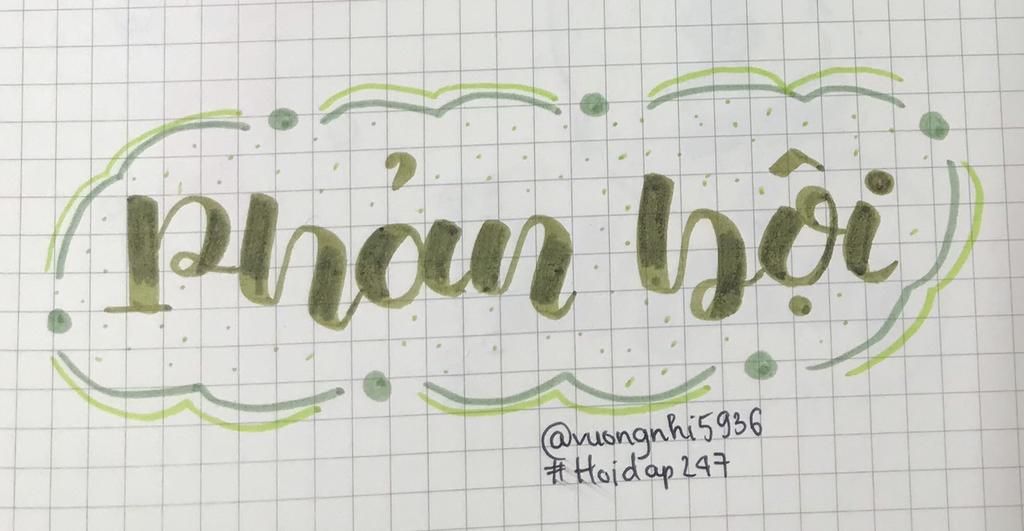 Phản bội
@vuongnhi5936
#Hoidap247